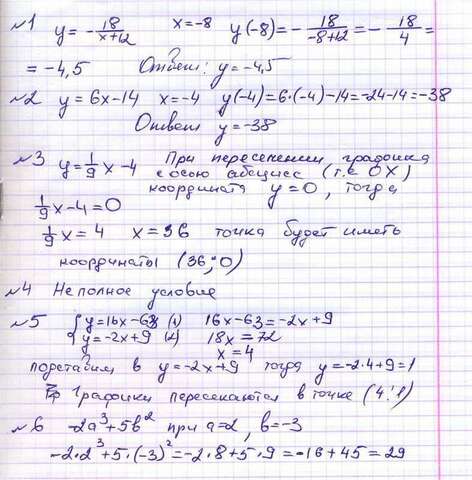 №1 y = -18/(x+12) x = -8 y(-8) = -18/(-8+12) = -18/4 =
= -4,5 Ответ: y = -4,5
№2 y = 6x-14 x = -4 y(-4) = 6·(-4)-14 = -24-14 = -38
Ответ y = -38
№3 y = 1/9 x - 4 При пересечении графика
с осью абсцисс (т.е OX)
координата y = 0, тогда
1/9 x - 4 = 0
1/9 x = 4 x = 36 точка будет иметь
координаты (36;0)
№4 Не полное условие
№5 { y = 16x-63 (1) 16x-63 = -2x+9
y = -2x+9 (2) 18x = 72
x = 4
подставим в y = -2x+9 тогда y = -2·4+9 = 1
Графики пересекаются в точке (4;1)
№6 -2a³+5b² при a=2, b=-3
-2·2³+5·(-3)² = -2·8+5·9 = -16+45 = 29